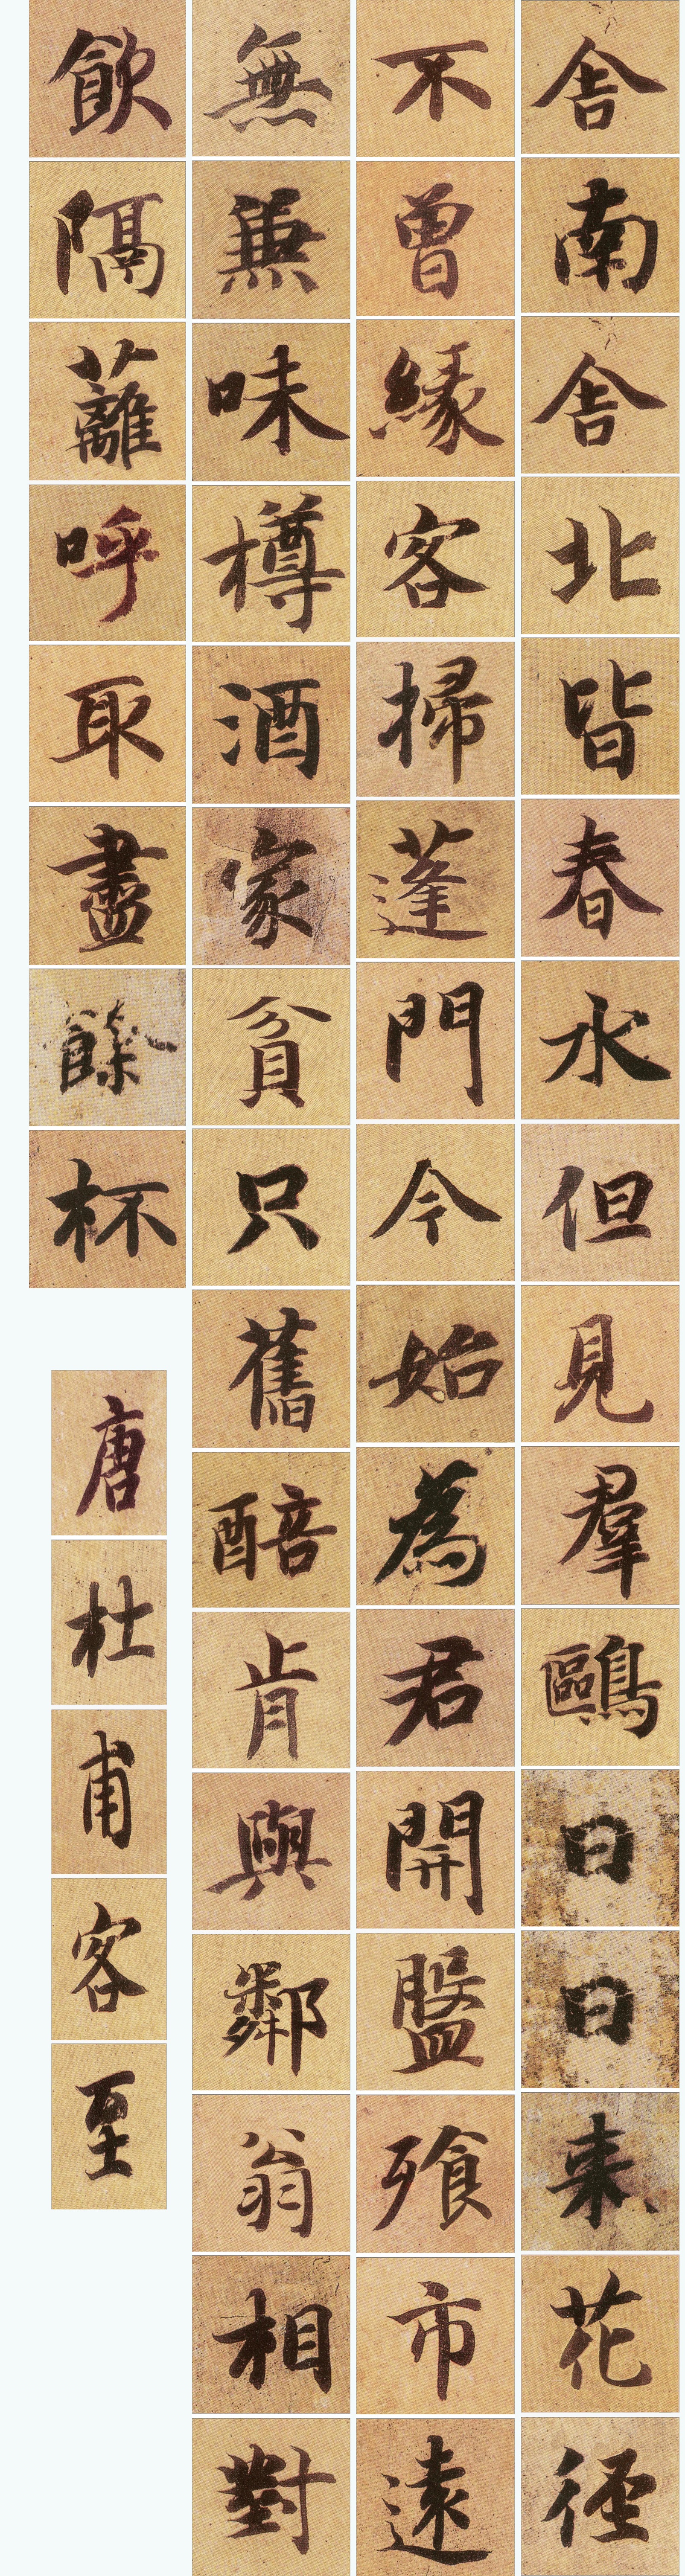 舍南舍北皆春水但見羣鷗日日来花徑
不曾緣客掃蓬門今始為君開盤飧市遠
無兼味樽酒家貧只舊醅肯與鄰翁相對
飲隔蘺呼取盡餘杯
唐杜甫客至